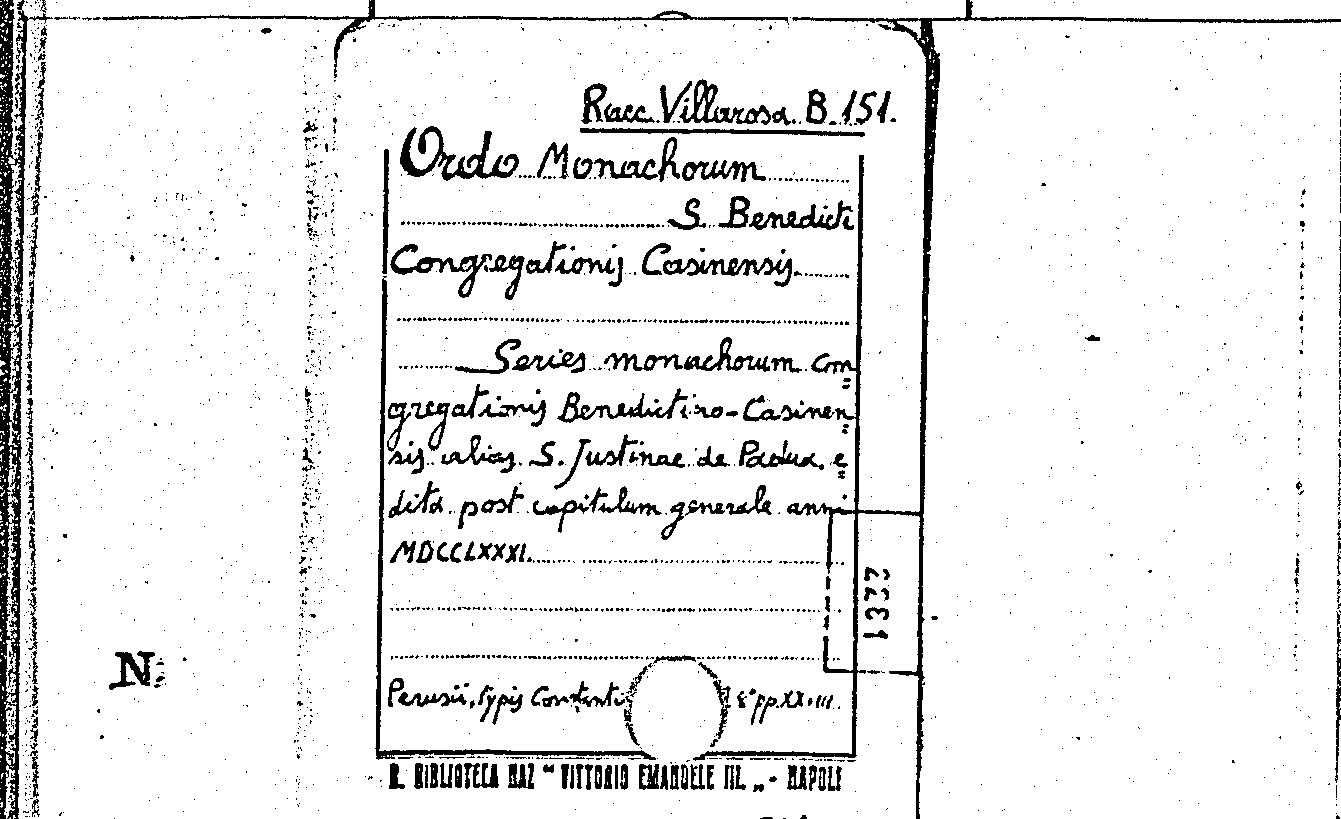 Racc. Villarosa. B. 151.
Ordo Monachorum
S. Benedicti
Congregationis Casinensis
Series monachorum com=
gregationis Benedictino-Casinen=
sis alias S. Justinae de Padua, e=
dita post capitulum generale anni
MDCCLXXXI.
1332
N
Perusii, typis 8° pp. XX.III.
R. BIBLIOTECA NAZ " VITTORIO EMANUELE III. „ - NAPOLI